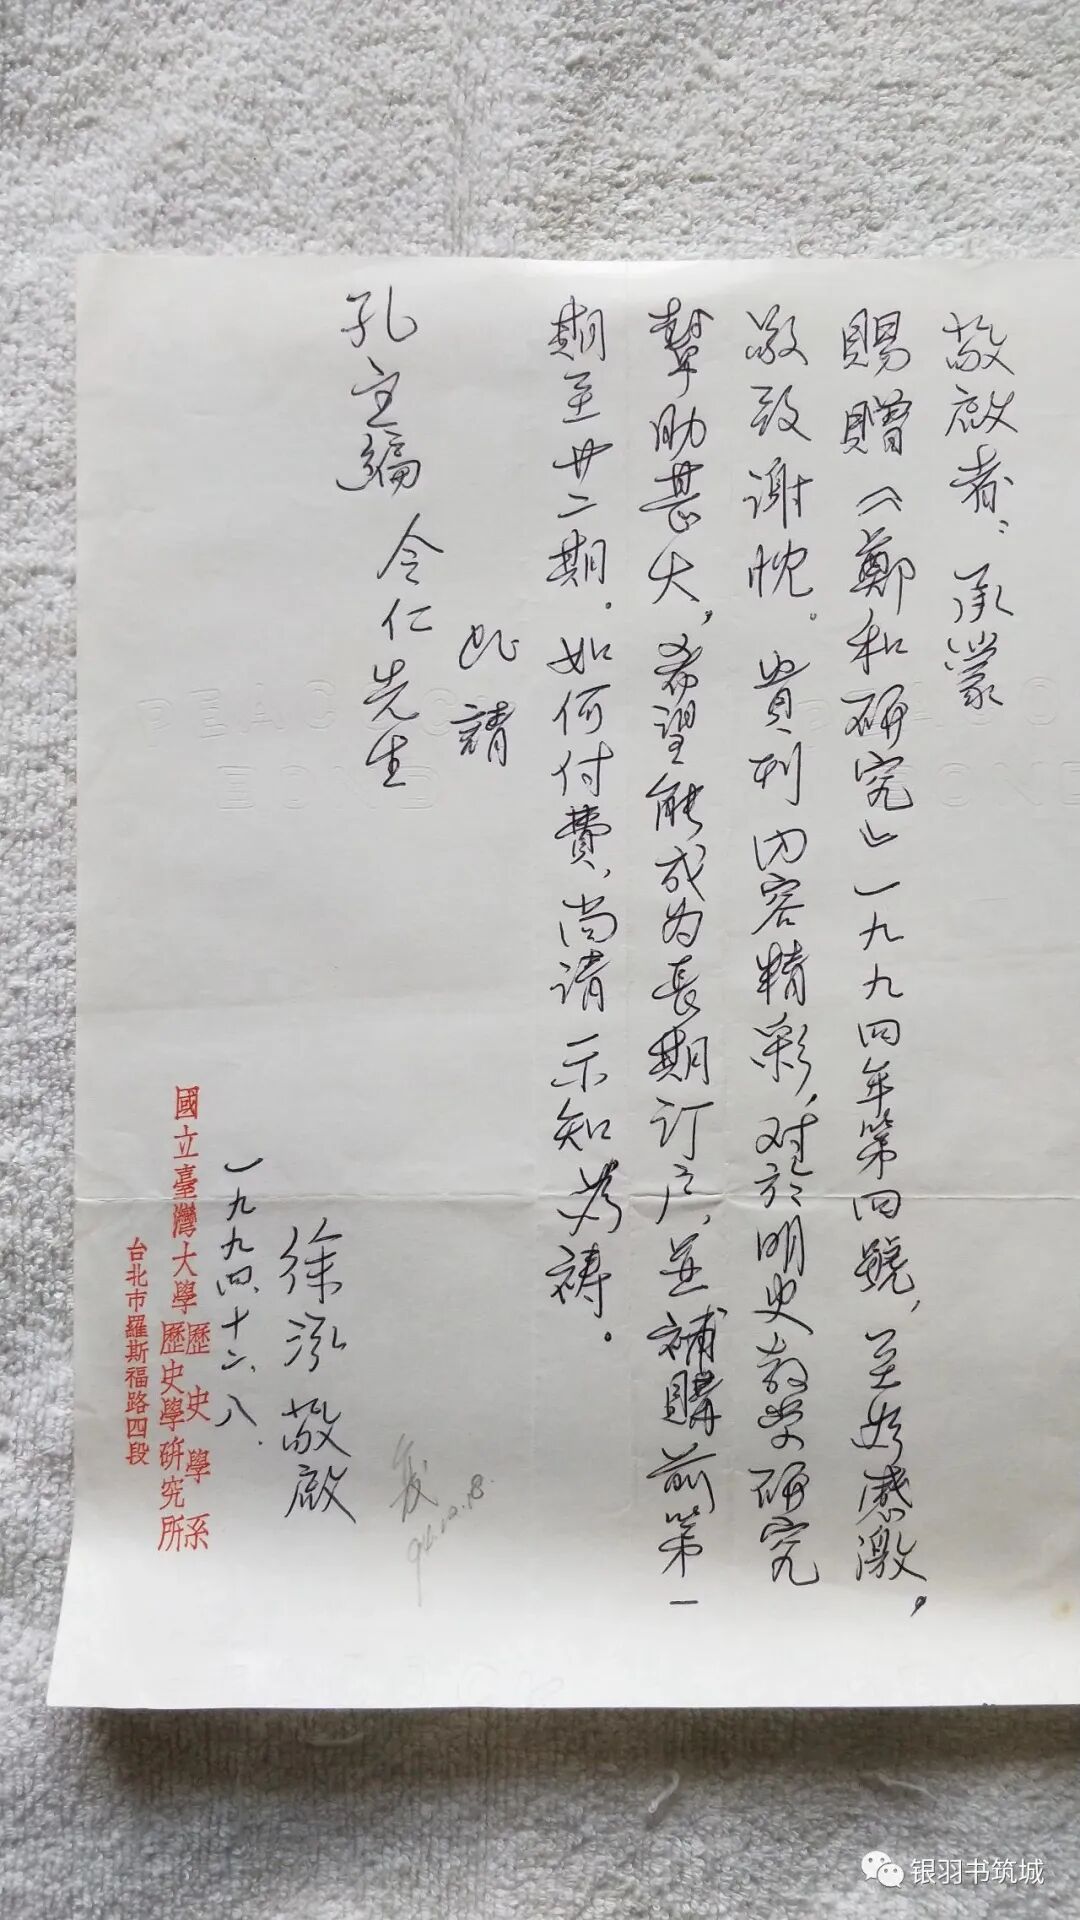 敬啟者：承蒙
賜贈《鄭和研究》一九九四年第四號，至為感激，
敬致谢忱。貴刊内容精彩，对於明史教学研究
幫助甚大，希望能成为長期订户，並補購前第一
期至廿二期。如何付費，尚请示知為禱。
此請
孔主編令仁先生
徐泓敬啟
一九九四、十二、八、
國立臺灣大學歷史學系
歷史學研究所
台北市羅斯福路四段
复
94.12.18.
PEAC
BOND
银羽书筑城